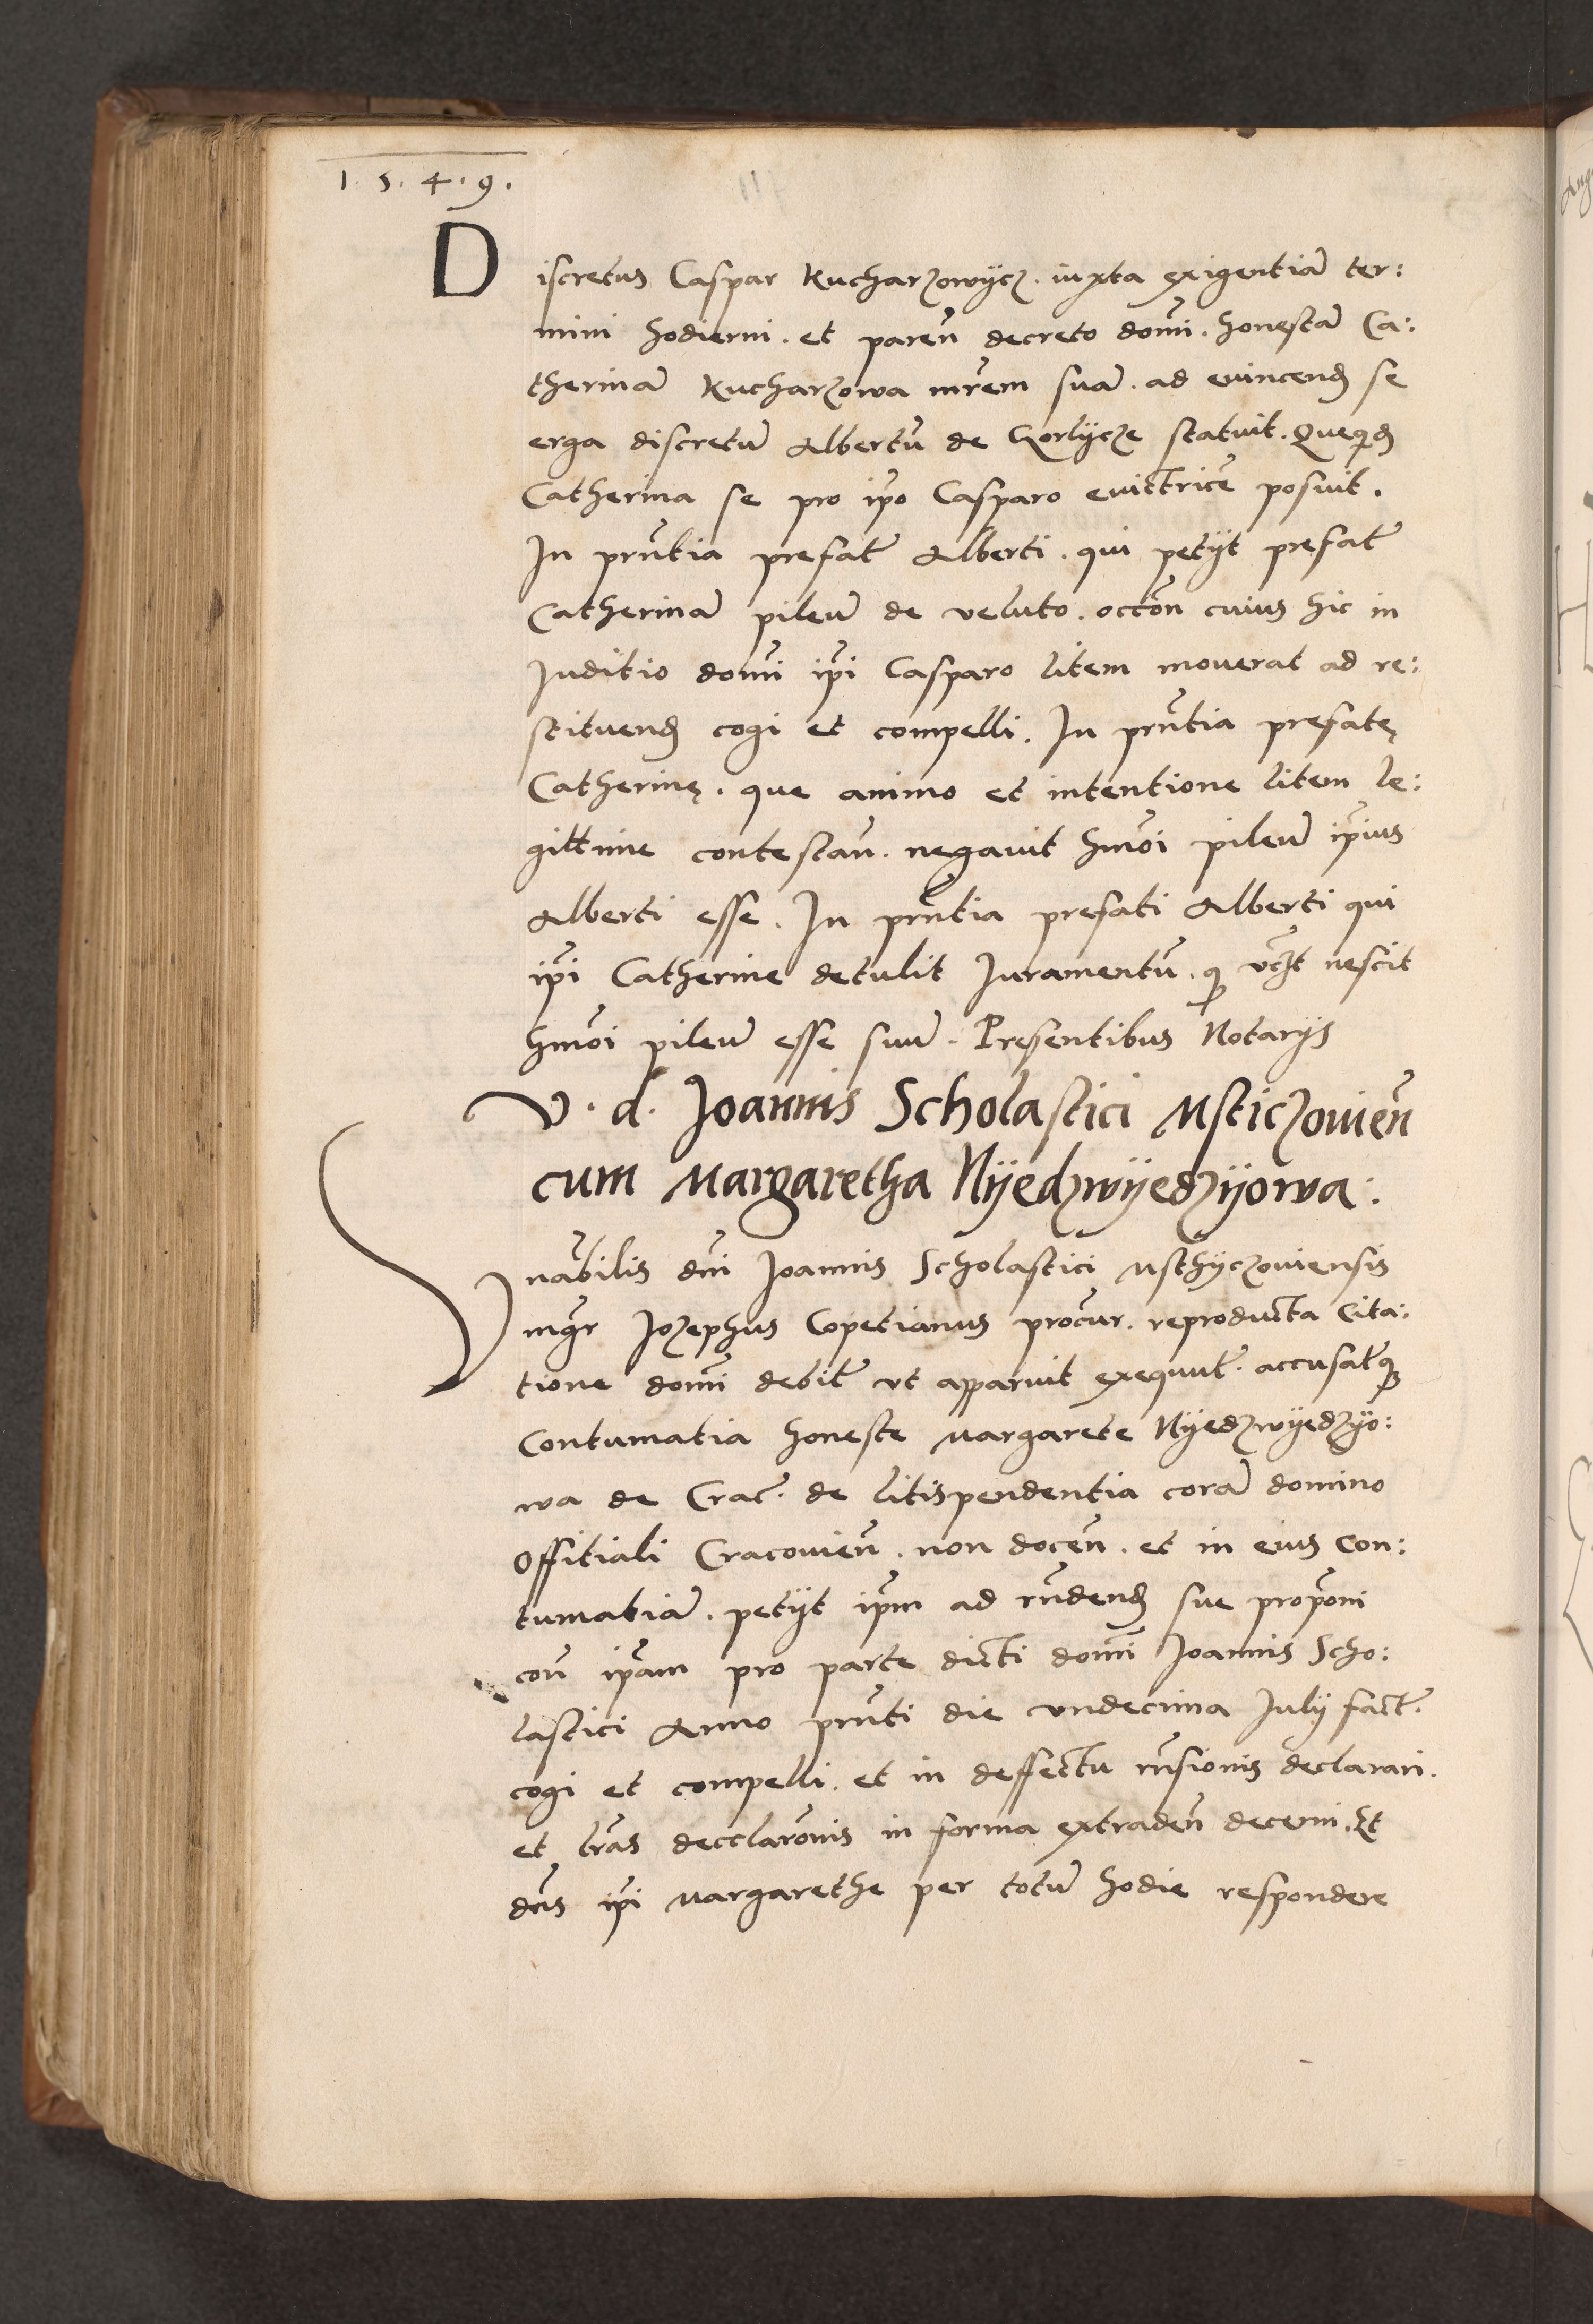 1.5.4.9.
Discretus Caspar Kucharzowycz. iuxta exigentiã ter:
mini hodierni. et pareñ decreto domi. honestã Ca:
therinã Kucharzowa mrẽm suã. ad euincend se
erga discretũ Albertũ de Gorlycze statuit. Queqd
Catherina se pro ipo Casparo euictricẽ posuit.
In prñtia prefat Alberti. qui petyt prefat
Catherinã pileũ de veluto. occõn cuius hic in
Juditio domi ipi Casparo litem mouerat ad re:
stituend cogi et compelli. In prñtia prefatę
Catherinę. que animo et intentione litem le:
gittime contestañ. negauit hmõi pileũ ipius
Alberti esse. In prñtia prefati Alberti qui
ipi Catherine detulit Juramentũ. q vt nescit
hmõi pileũ esse suũ. Presentibus Notarys
V. d. Joannis Scholastici Msticzouieñ
cum Margaretha Nyedzwyedzyowa:
Vnãbilis dni Joannis Scholastici Msthyczouiensis
mgr Jozephus Copetianus procur. reproducta Cita:
tione domi debit vt apparuit exequut. accusatq
Contumatia honeste Margarete Nyedzwyedzyo:
wa de Crac. de litispendentia corã domino
Offitiali Cracouieñ. non doceñ. et in eius Con:
tumatiã. petyt ipm ad rñdend sue propõni
coñ ipam pro parte dicti domi Joannis Scho:
lastici Anno prñti die vndecima July fact.
cogi et compelli. et in deffectu rñsionis declarari.
et lrãs decclarõnis in forma extradeñ decerni. Et
dñs ipi Margarethe per totũ hodie respondere